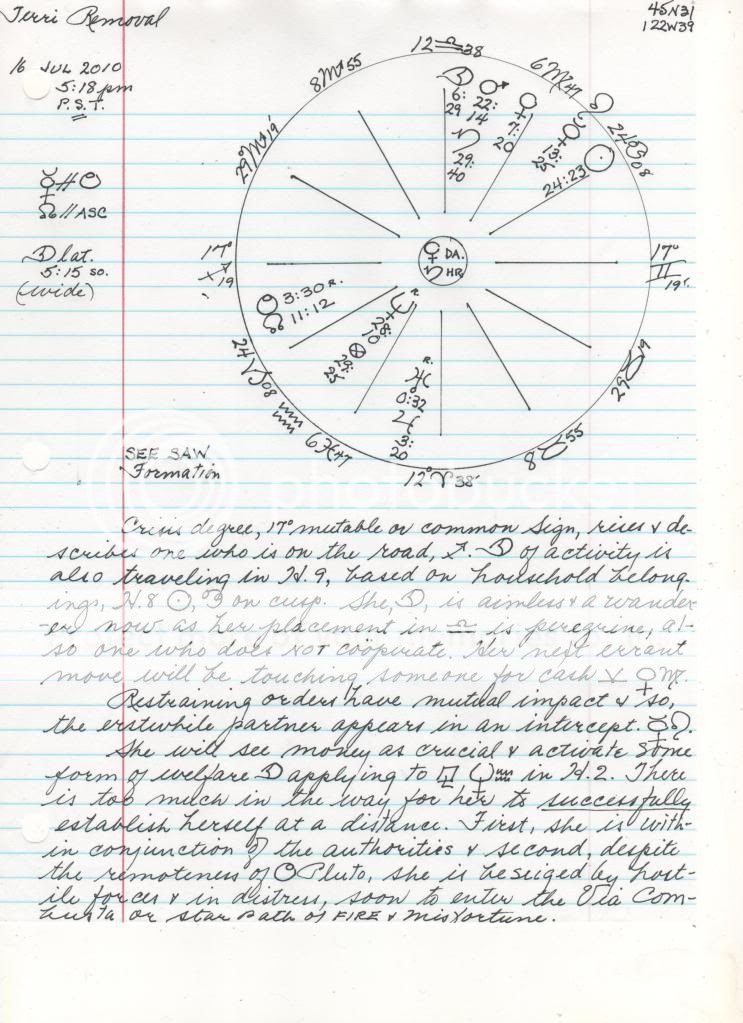 Terri Removal
45N31
122W39
16 JUL 2010
5:18pm
P.S.T.
☿ // ☉
☊ // ASC
☽ lat.
5:15 so.
(wide)
12 ♎ 38
8 ♏ 55
6 ♍ 47
29 ♏ 19'
24 ♋ 08
17° ♐ 19
17° ♊ 19'
24 ♑ 08
♒
6 ♓ 47
12° ♈ 38'
8 ♉ 55
29 ♉ 19
♌
☽ 6: 29
♂ 22: 14
♀ 7: 20
♄ 29: 40
☿ 13: 25
☉ 24:23
♀ DA.
♄ HR.
3:30 R.
☊ 11:12
♆ R. 28: 10
⊗ 29: 25
R.
♅ 0:32
♃ 3: 20
SEE SAW
Formation
Crisis degree, 17° mutable or common sign, rises & de-
scribes one who is on the road, ♐. ☽ of activity is
also traveling in H.9, based on household belong-
ings, H.8 ☉, ♋ on cusp. She, ☽, is aimless & a wander-
er now as her placement in ♎ is peregrine, al-
so one who does NOT coöperate. Her next errant
move will be touching someone for cash ⚺ ♀ ♍.
Restraining orders have mutual impact & so,
the erstwhile partner appears in an intercept. ☿ ♌.
She will see money as crucial & activate some
form of welfare ☽ applying to ♆ ♒ in H.2. There
is too much in the way for her to successfully
establish herself at a distance. First, she is with-
in conjunction of the authorities & second, despite
the remoteness of Pluto, she is beseiged by host-
ile forces & in distress, soon to enter the Via Com-
busta or star path of FIRE & misfortune.